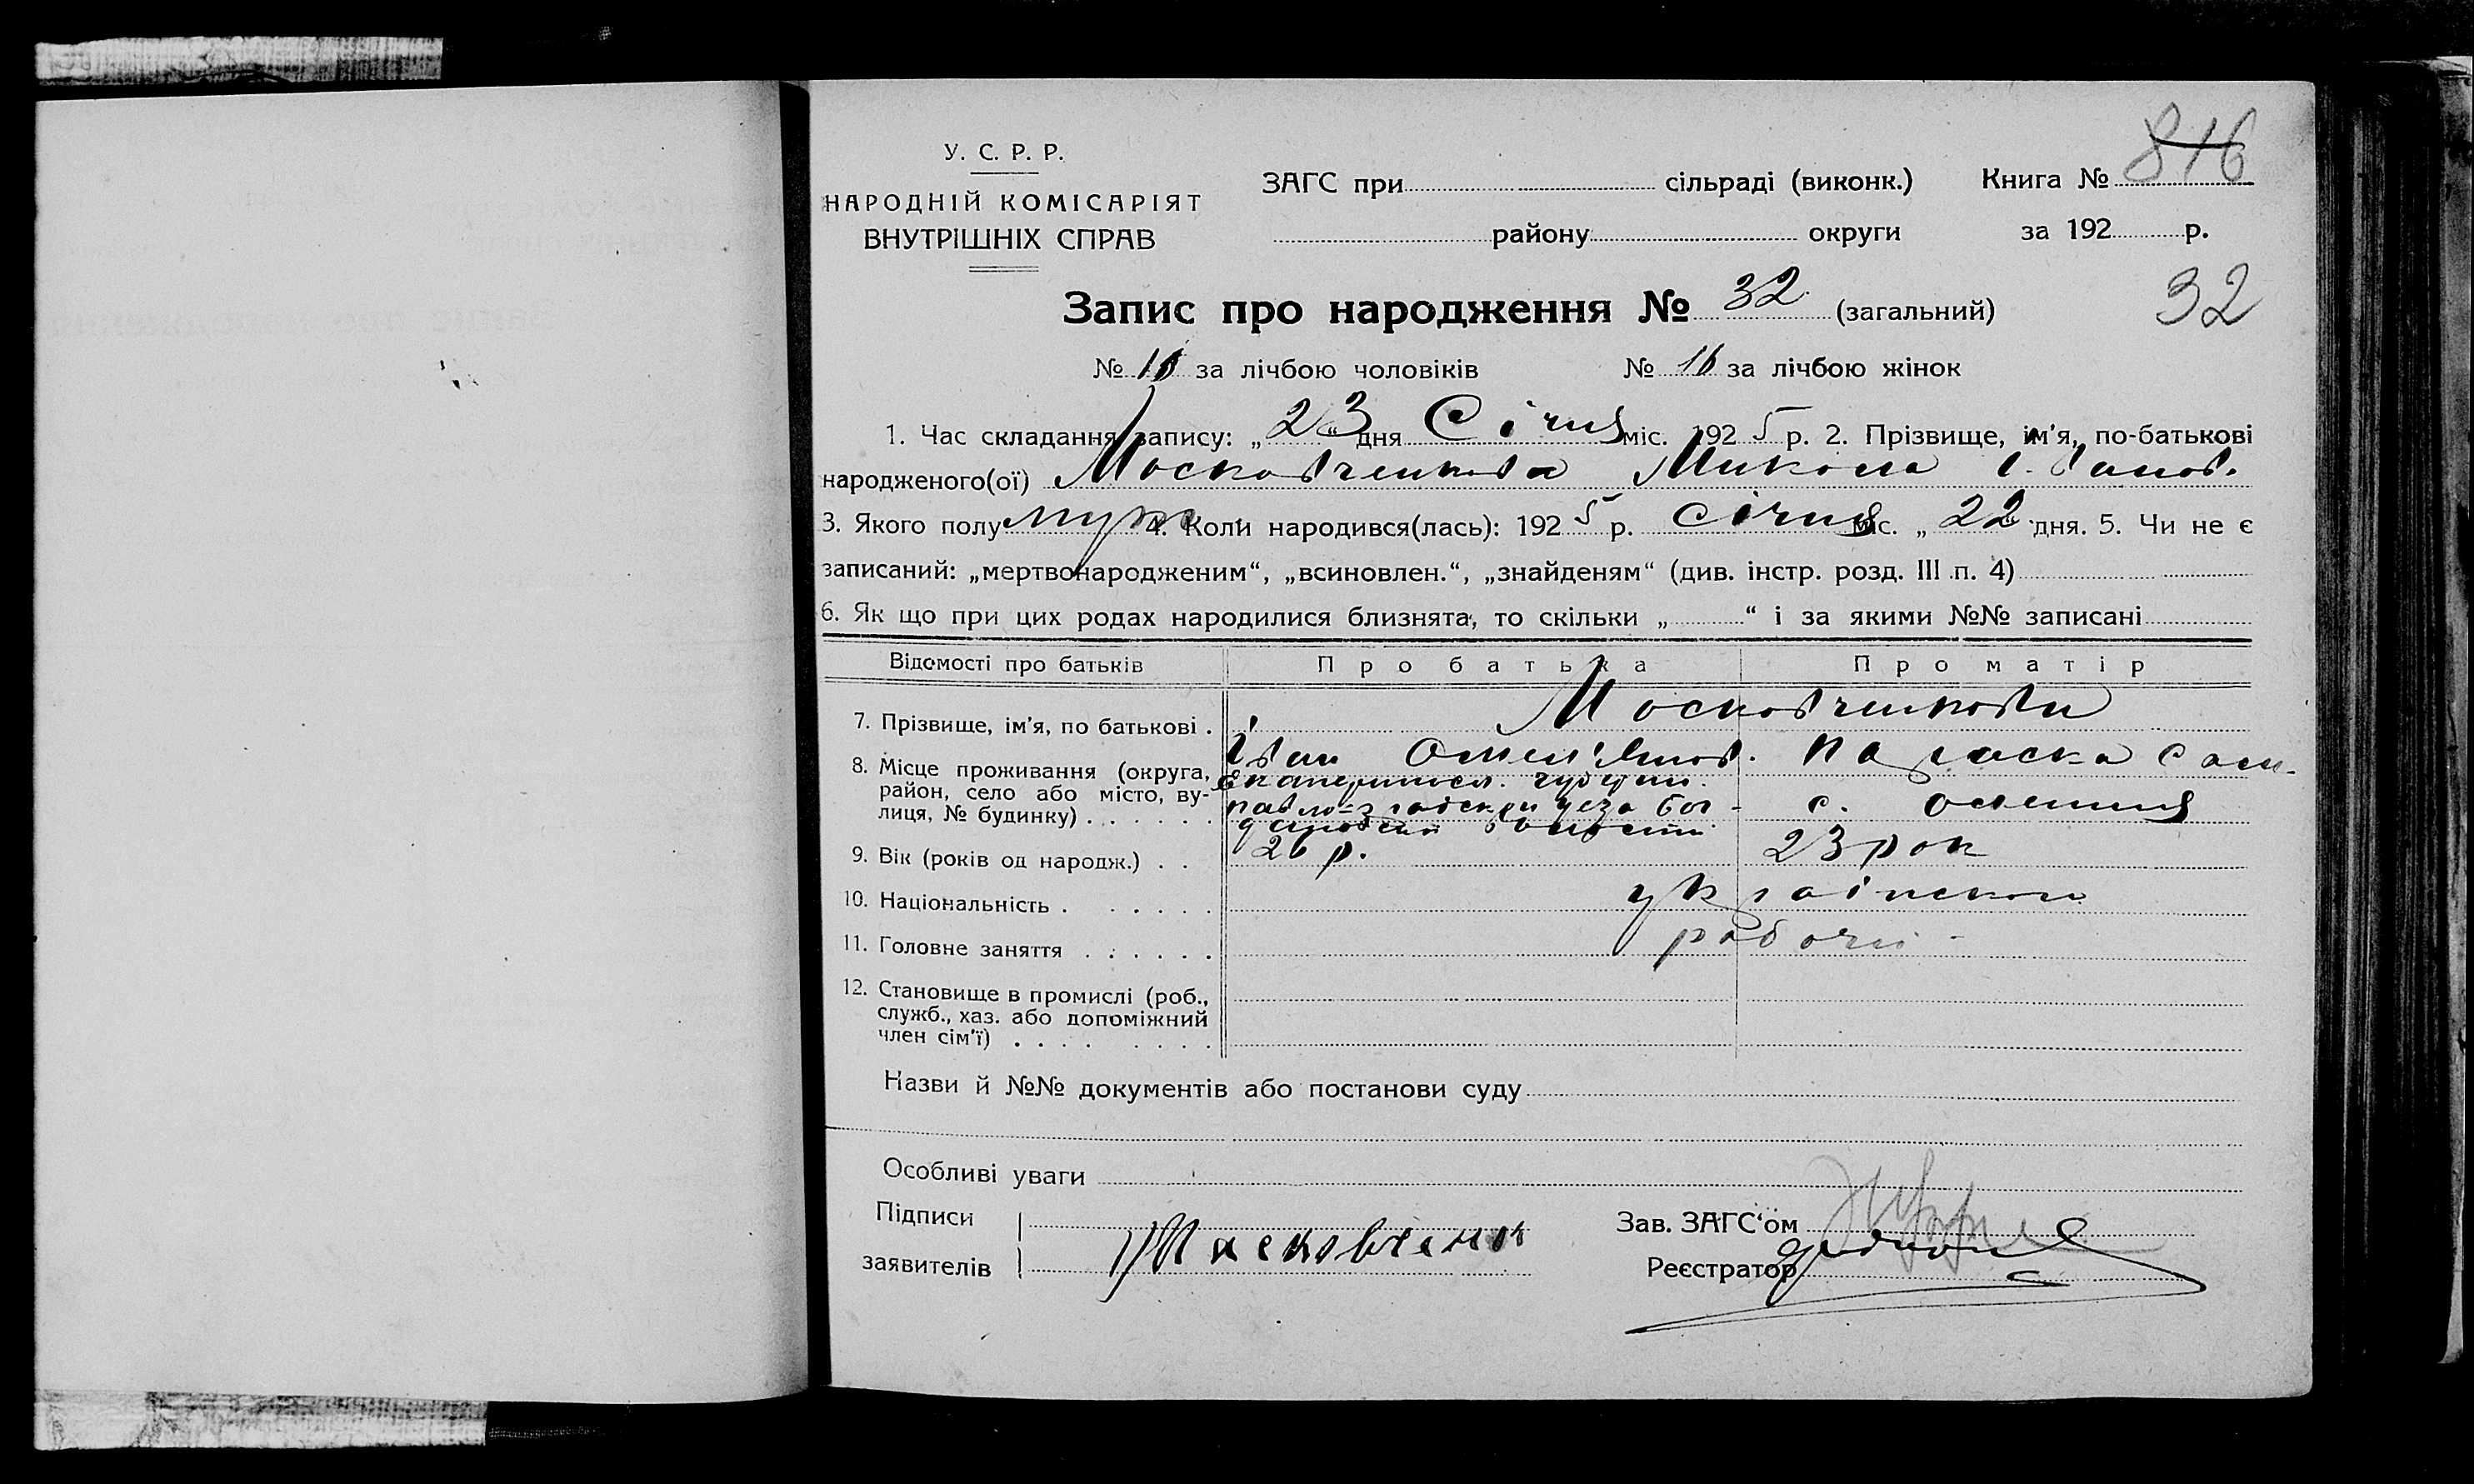 У. С. Р. Р.
НАРОДНІЙ КОМІСАРІЯТ
ВНУТРІШНІХ СПРАВ
ЗАГС при сільраді (виконк.) Книга № 816
району округи за 192 р.
Запис про народження № 32 (загальний) 32
№ за лічбою чоловіків № 16 за лічбою жінок
1. Час складання запису: „23“ дня Січня міс. 1925 р. 2. Прізвище, ім'я, по-батькові
народженого(ої) Московченкова Микола Іванов.
3. Якого полу муж 4. Коли народився(лась): 1925 р. січня міс. „22 дня. 5. Чи не є
записаний: „мертвонародженим“, „всиновлен.“, „знайденям“ (див. інстр. розд. III п. 4)
6. Як що при цих родах народилися близнята, то скільки „ “ і за якими №№ записані
Відомості про батьків Про батька Про матір
7. Прізвище, ім'я, по батькові . Московченкови
Іван Омел'янов. Параска
8. Місце проживання (округа, район, село або місто, вулиця, № будинку) . . . . . . Екатериносл. губерни.
Павло= Бог-
с.
9. Вік (років од народж.) . . 26 р. 23 рок
10. Національність . . . . . . українском
11. Головне заняття . . . . . . рабочи -
12. Становище в промислі (роб.,
служб., хаз. або допоміжний
член сім'ї) . . . . . . . . .
Назви й №№ документів або постанови суду
Особливі уваги
Підписи
заявителів Московченко
Зав. ЗАГС'ом
Реєстратор